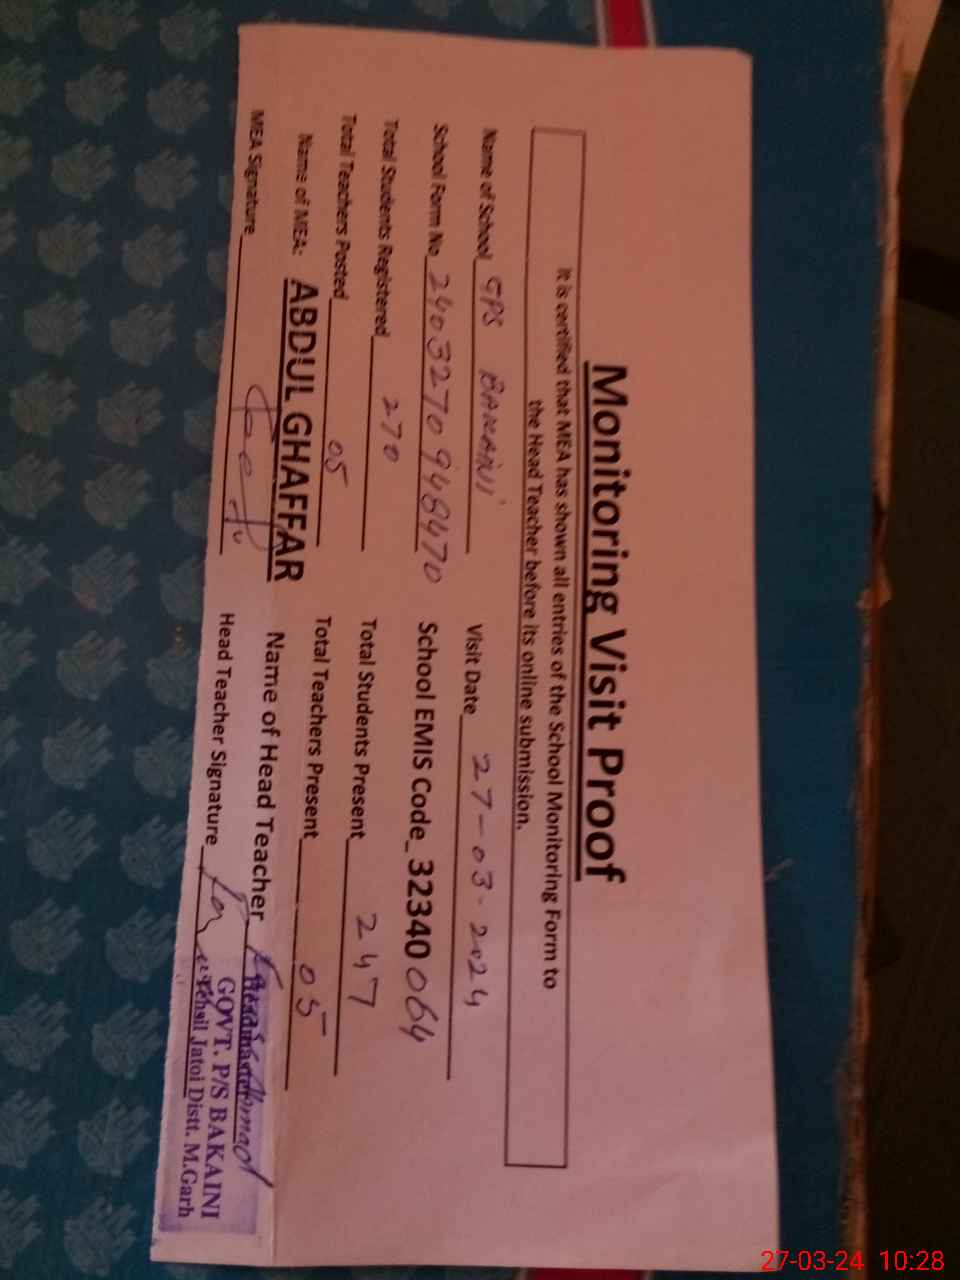 Monitoring Visit Proof
It is certified that MEA has shown all entries of the School Monitoring Form to
the Head Teacher before its online submission.
Name of School GPS BAKAINI Visit Date 27-03-2024
School Form No 2403270948470 School EMIS Code_32340064
Total Students Registered 270 Total Students Present 247
Total Teachers Posted 05 Total Teachers Present 05
Name of MEA: ABDUL GHAFFAR Name of Head Teacher
MEA Signature Head Teacher Signature
Headmaster
GOVT. P/S BAKAINI
Tehsil Jatoi Distt. M.Garh
27-03-24 10:28